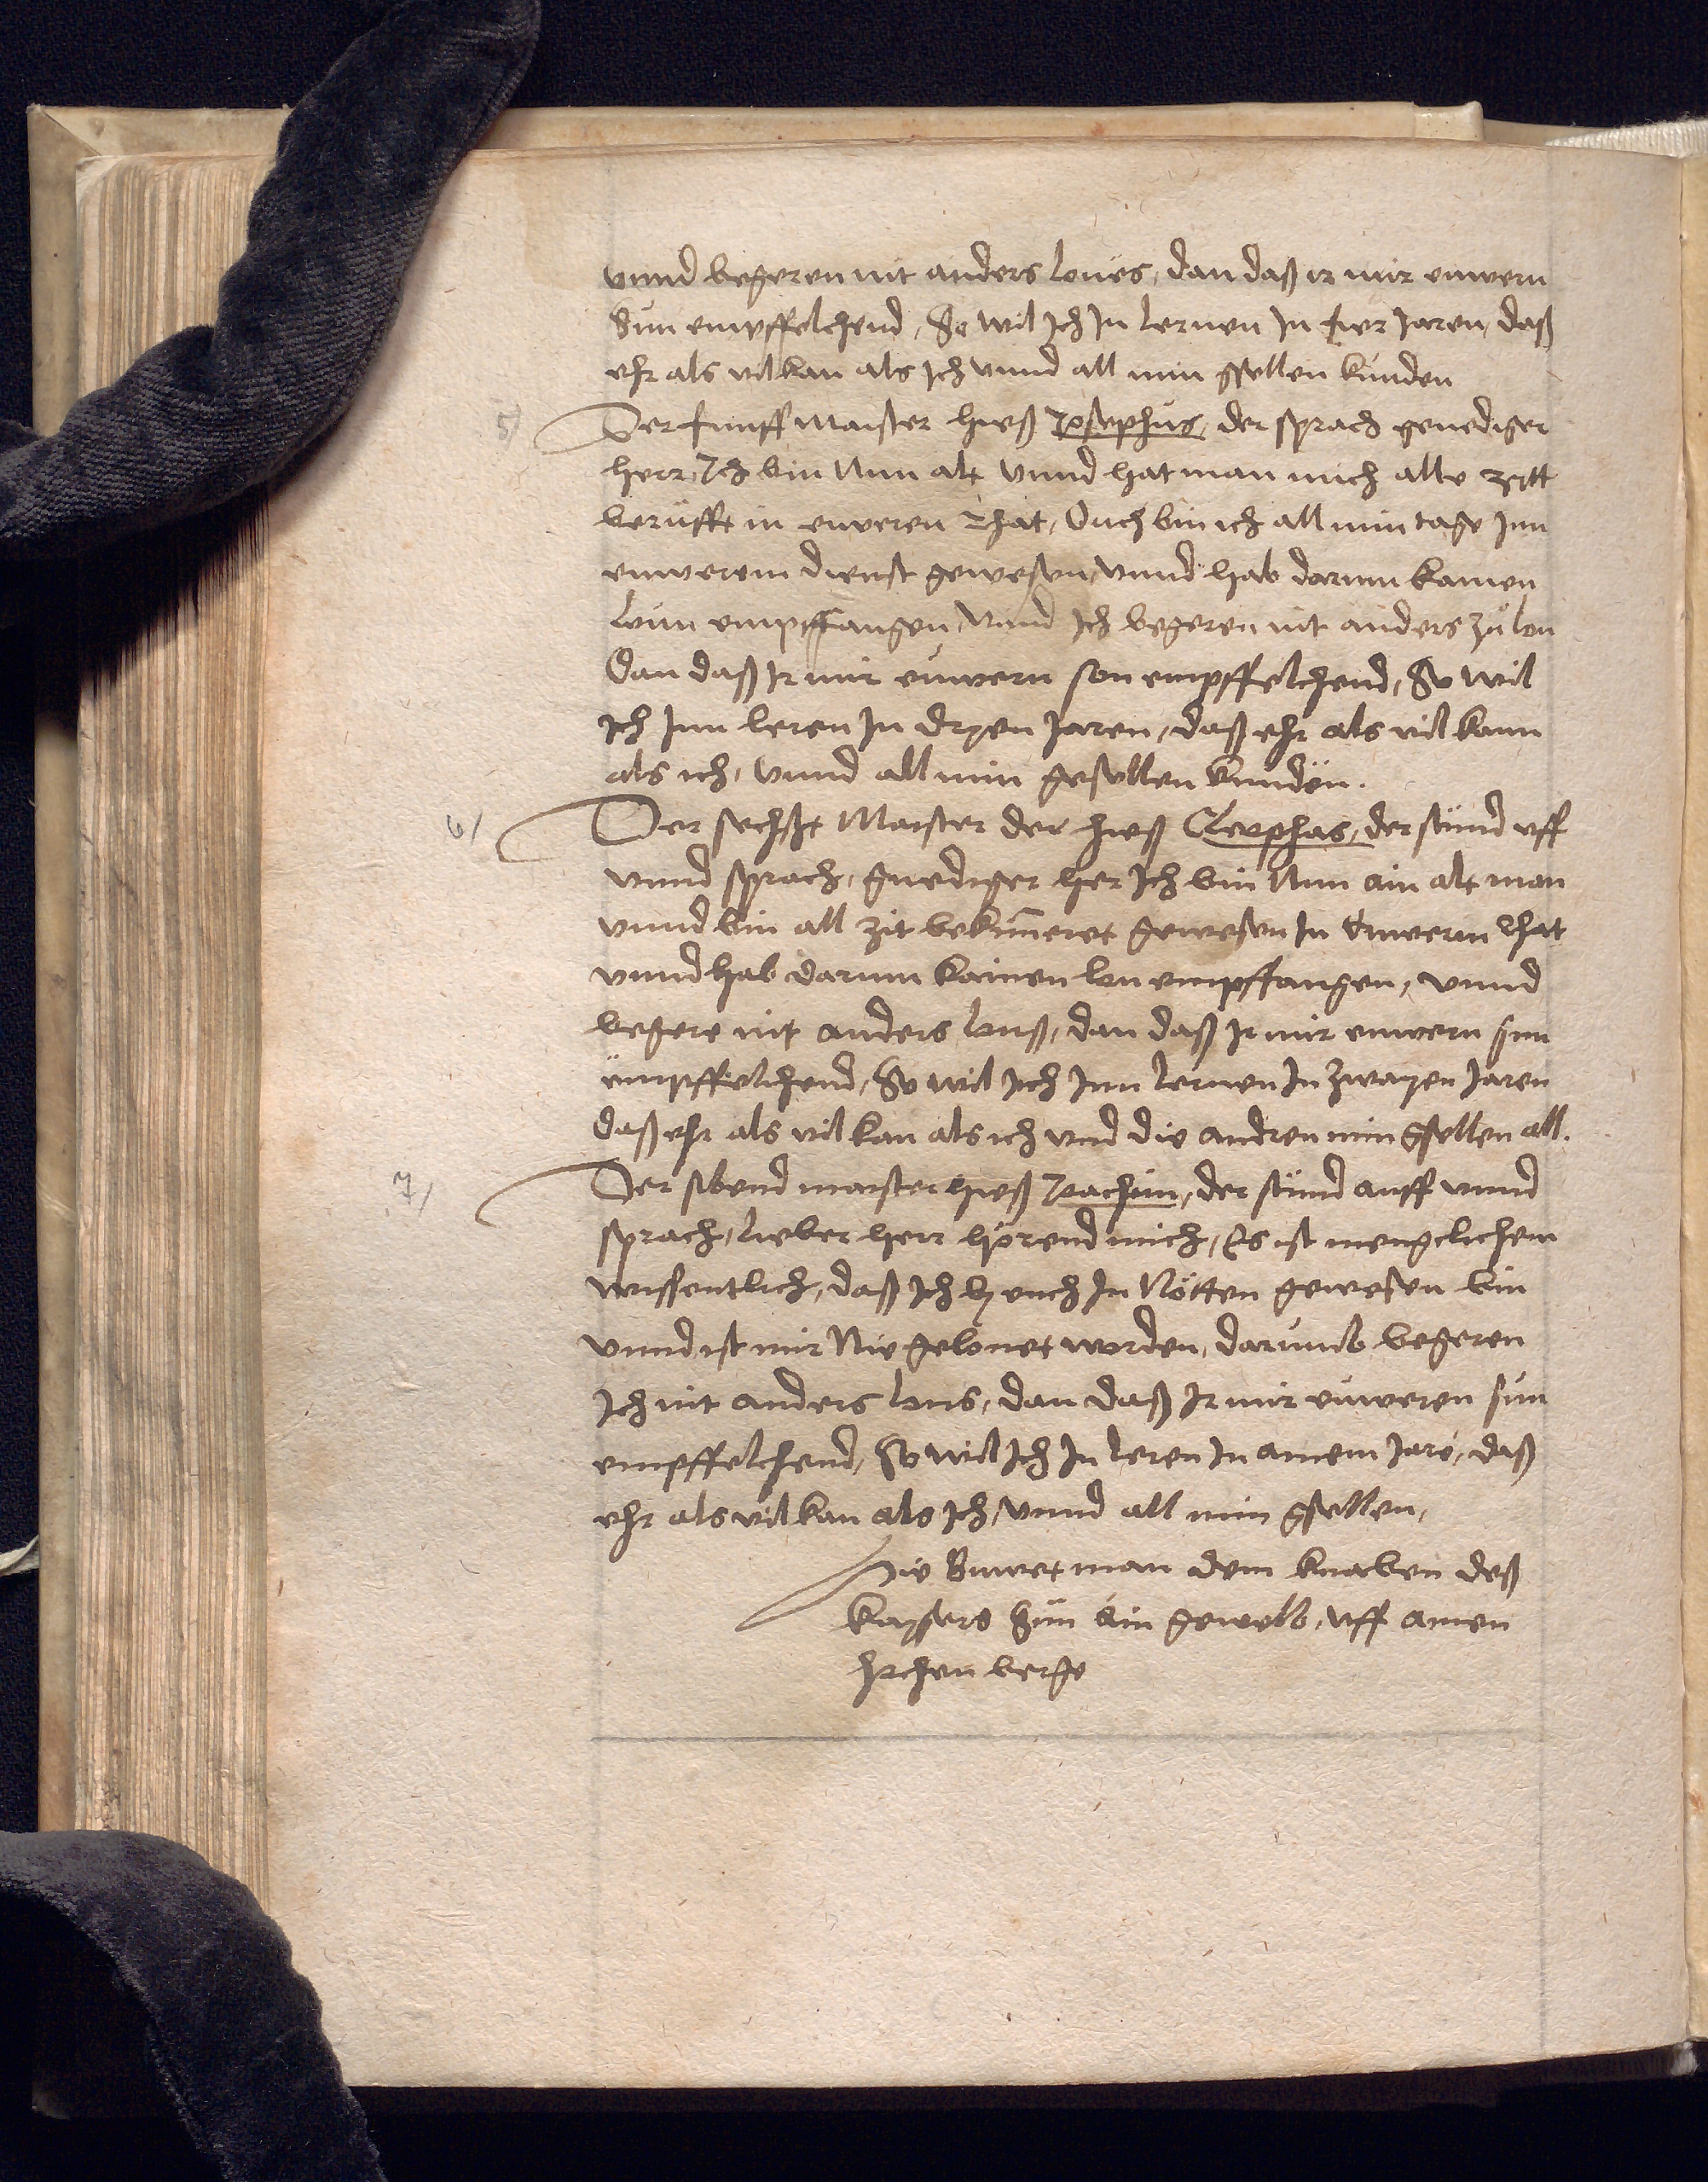 vnnd begeren nit anders lones, dan daß ir mir euwern
Sun empffelchend, So wil Ich In lernen In fier Jaren, daß
ehr als vil kan als Ich vnnd all min gsellen kunden
5) Der funff Maister hieß Josephus, der sprach genediger
herr, Ich bin Nun alt vnnd hat man mich alle zytt
berüfft in euweren Rhat, Ouch bin ich all min tage Inn
euwerem dienst gewesen, vnnd hab darum kainen
Lonn empffangen, vnnd Ich begeren nit anders zů lon
Dan daß Ir mir euwern son empffelchend, So wil
Ich Inn leren In dryen Jaren, daß ehr als vil kann
als ich, vnnd all min gesellen kunden.
6/ Der sechßt Maister der hieß Cleophas, der stůnd vff
vnnd sprach, gnediger her Ich bin Nun ain alt man
vnnd bin all zit bekümeret gewesen In Euwerm Rhat
vnnd hab darum kainen lon empffangen, vnnd
begere nit anders lonß, dan daß Ir mir euwern sun
empffelchend, So wil ich Inn lernen In zwayen Jaren
daß ehr als vil kan als ich vnd die andren min gsellen all.
7/ Der sibend maister hieß Joachim, der stůnd auff vnnd
sprach, lieber herr hörend mich, Es ist mengclichem
wissentlich, daß Ich by euch In Nötten gewesen bin
vnnd ist mir Nie gelonet worden, darumb begeren
Ich nit anders lons, dan daß Ir mir euweren sun
empffelchend, So wil Ich In leren In ainem Jare, daß
ehr als vil kan als Ich, vnnd all min gsellen,
Hie Buwet man dem knaben deß
kaysers Sun ain gewelb, vff ainen
hochen berge